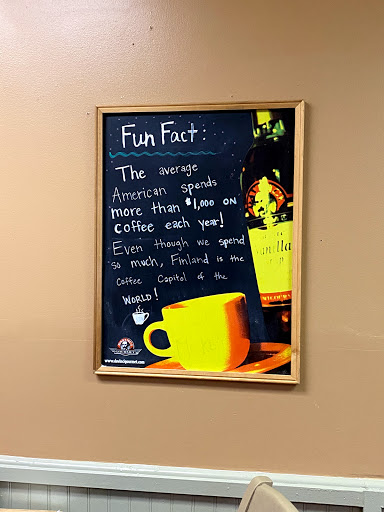 Fun Fact:
The average
American spends
more than $1,000 on
coffee each year!
Even though we spend
so much, Finland is the
Coffee Capitol of the
WORLD!